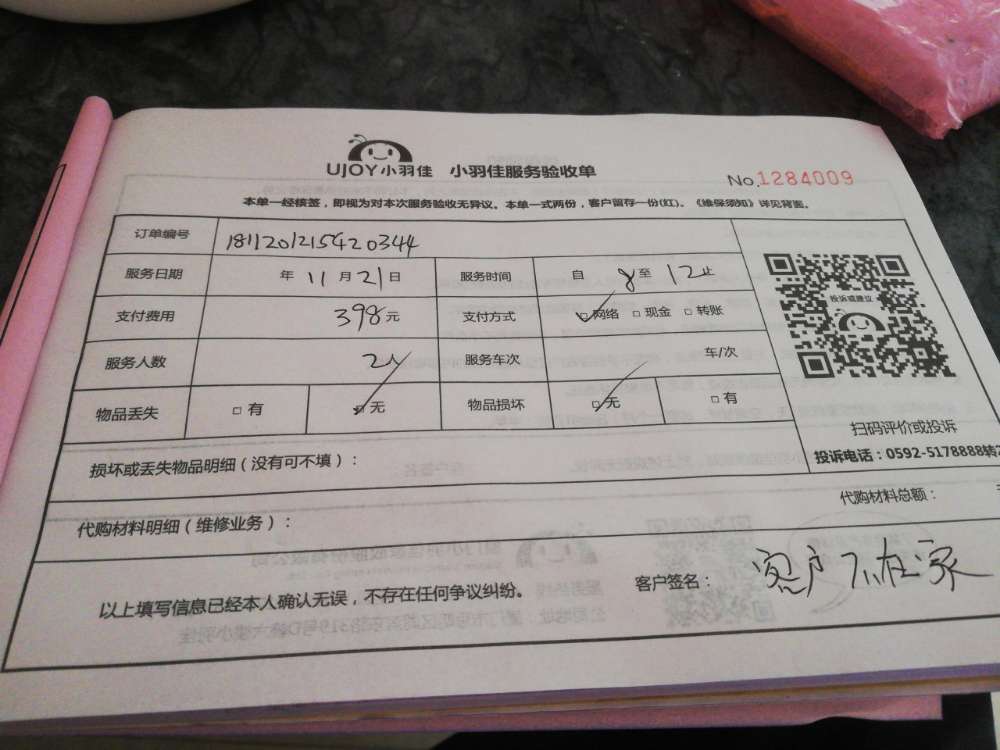 UJOY小羽佳 小羽佳服务验收单
No.1284009
本单一经核签，即视为对本次服务验收无异议。本单一式两份，客户留存一份(红)。《维保须知》详见背面。
订单编号 1811201215420344
服务日期 年 11月21日 服务时间 自 8 至 12止
支付费用 398元 支付方式 □网络 □现金 □转账
投诉或建议
服务人数 2人 服务车次 车/次
物品丢失 □有 □无 物品损坏 □无 □有
扫码评价或投诉
投诉电话：0592-5178888转2
损坏或丢失物品明细（没有可不填）：
代购材料明细（维修业务）： 代购材料总额：
以上填写信息已经本人确认无误，不存在任何争议纠纷。 客户签名： 客户不在家